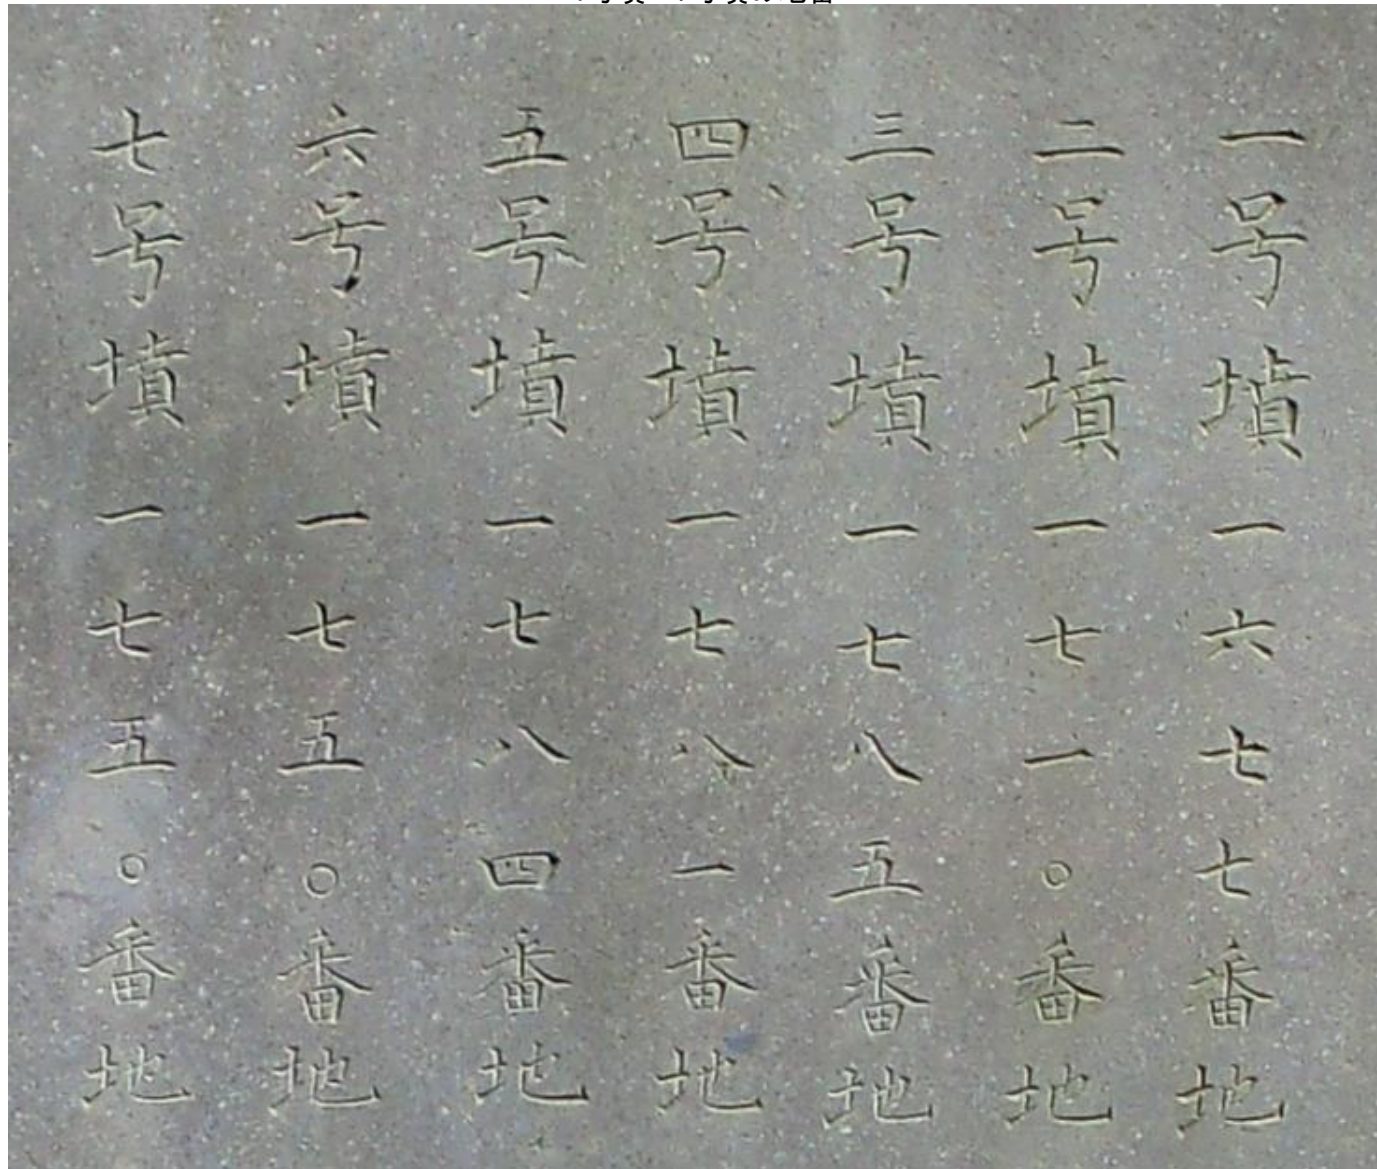 一号墳一六七七番地
二号墳一七一〇番地
三号墳一七八五番地
四号墳一七八一番地
五号墳一七八四番地
六号墳一七五〇番地
七号墳一七五〇番地